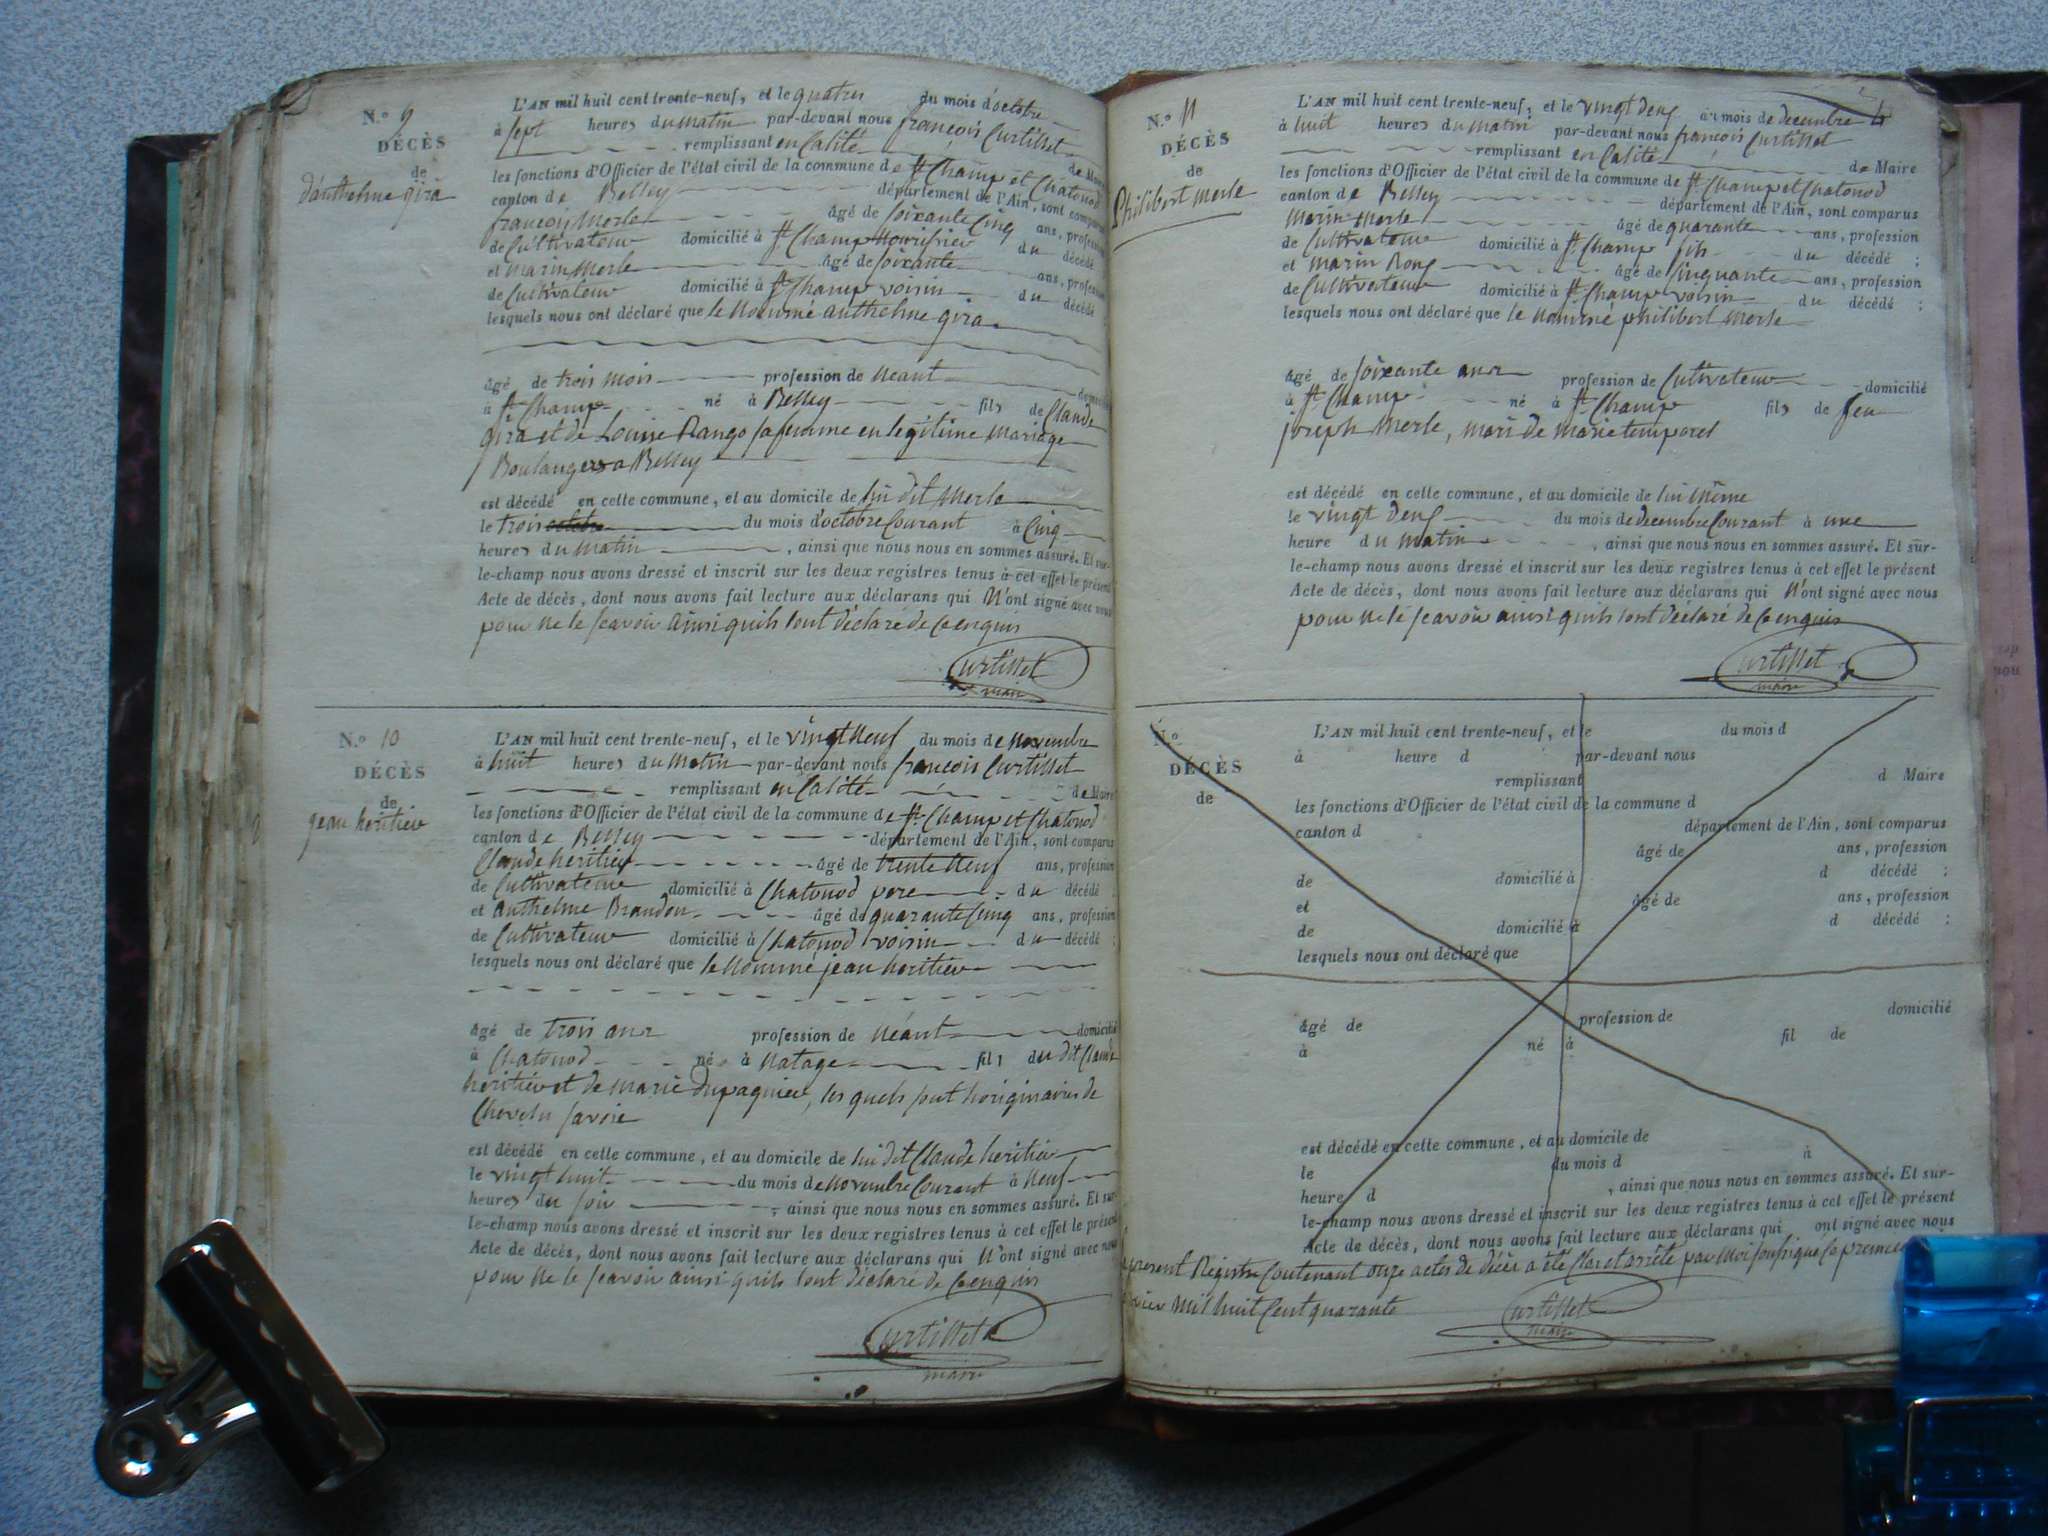 N.° 9
DÉCÈS
de
d'anthelme gira
L'AN mil huit cent trente-neuf, et le quatres du mois d'octobre
à sept heures du matin par-devant nous françois Curtillet
remplissant en Calité de Maire
les fonctions d'Officier de l'état civil de la commune de St Champ et Chatonod
canton de Belley département de l'Ain, sont comparus
françois Merle âgé de soixante Cinq ans, profession
de Cultivateur domicilié à St Champ Nourisier du décédé
et marin Merle âgé de soixante ans, profession
de Cultivateur domicilié à St Champ voisin du décédé ;
lesquels nous ont déclaré que le Nommé anthelme gira
âgé de trois mois profession de Neant domicilié
à St Champ né à Belley fils de Claude
gira et de Louise Rango sa femme en legitime mariage
Boulangers a Belley
est décédé en cette commune, et au domicile de lui dit Merle
le trois octobre du mois d'octobre Courant à Cinq
heures du matin , ainsi que nous nous en sommes assuré. Et sur-
le-champ nous avons dressé et inscrit sur les deux registres tenus à cet effet le présent
Acte de décès, dont nous avons fait lecture aux déclarans qui N'ont signé avec nous
pour ne le scavoir ainsi quils lont déclaré de Ce enquis
Curtillet
maire
N.° 10
DÉCÈS
de
jean heritier
L'AN mil huit cent trente-neuf, et le vingt Neuf du mois de Novembre
à huit heures du Matin par-devant nous françois Curtillet
remplissant en Calité de Maire
les fonctions d'Officier de l'état civil de la commune de St Champ et Chatonod
canton de Belley département de l'Ain, sont comparus
Claude heritier âgé de trente Neuf ans, profession
de Cultivateur domicilié à Chatonod pere du décédé ;
et anthelme Brandon âgé de quarante Cinq ans, profession
de Cultivateur domicilié à Chatonod voisin du décédé ;
lesquels nous ont déclaré que le Nommé jean heritier
âgé de trois ans profession de Néant domicilié
à Chatonod né à Natage fils du dit Claude
heritier et de marie dupaquier, les quels sont horiginaires de
Chevelu Savoie
est décédé en cette commune, et au domicile de lui dit Claude heritier
le vingt huit du mois de Novembre Courant à Neuf
heures du soir , ainsi que nous nous en sommes assuré. Et sur-
le-champ nous avons dressé et inscrit sur les deux registres tenus à cet effet le présent
Acte de décès, dont nous avons fait lecture aux déclarans qui N'ont signé avec nous
pour ne le scavoir ainsi quils lont déclaré de Ce enquis
Curtillet
maire
N.° 11
DÉCÈS
de
Philibert Merle
4
L'AN mil huit cent trente-neuf, et le vingt deux du mois de decembre
à huit heures du Matin par-devant nous françois Curtillet
remplissant en Calité de Maire
les fonctions d'Officier de l'état civil de la commune de St Champ et Chatonod
canton de Belley département de l'Ain, sont comparus
Marin Merle âgé de quarante ans, profession
de Cultivateur domicilié à St Champ fils du décédé ;
et marin Roux âgé de Cinquante ans, profession
de Cultivateur domicilié à St Champ voisin du décédé ;
lesquels nous ont déclaré que le Nommé philibert Merle
âgé de soixante ans profession de Cultivateur domicilié
à St Champ né à St Champ fils de feu
joseph Merle, mari de marie temporel
est décédé en cette commune, et au domicile de lui même
le vingt deux du mois de decembre Courant à une
heure du matin , ainsi que nous nous en sommes assuré. Et sur-
le-champ nous avons dressé et inscrit sur les deux registres tenus à cet effet le présent
Acte de décès, dont nous avons fait lecture aux déclarans qui N'ont signé avec nous
pour ne le scavoir ainsi quils lont déclaré de Ce enquis
Curtillet
maire
N.°
DÉCÈS
de
L'AN mil huit cent trente-neuf, et le du mois d
à heure d par-devant nous
remplissant d Maire
les fonctions d'Officier de l'état civil de la commune d
canton d département de l'Ain, sont comparus
âgé de ans, profession
de domicilié à d décédé ;
et âgé de ans, profession
de domicilié à d décédé ;
lesquels nous ont déclaré que
âgé de profession de domicilié
à né à fil de
est décédé en cette commune, et au domicile de
le du mois d à
heure d , ainsi que nous nous en sommes assuré. Et sur-
le-champ nous avons dressé et inscrit sur les deux registres tenus à cet effet le présent
Acte de décès, dont nous avons fait lecture aux déclarans qui ont signé avec nous
present Registre Contenant onze actes de décès a été Clos et arrêté par Moi soussigné le premier
vier Mil huit Cent quarante
Curtillet
maire